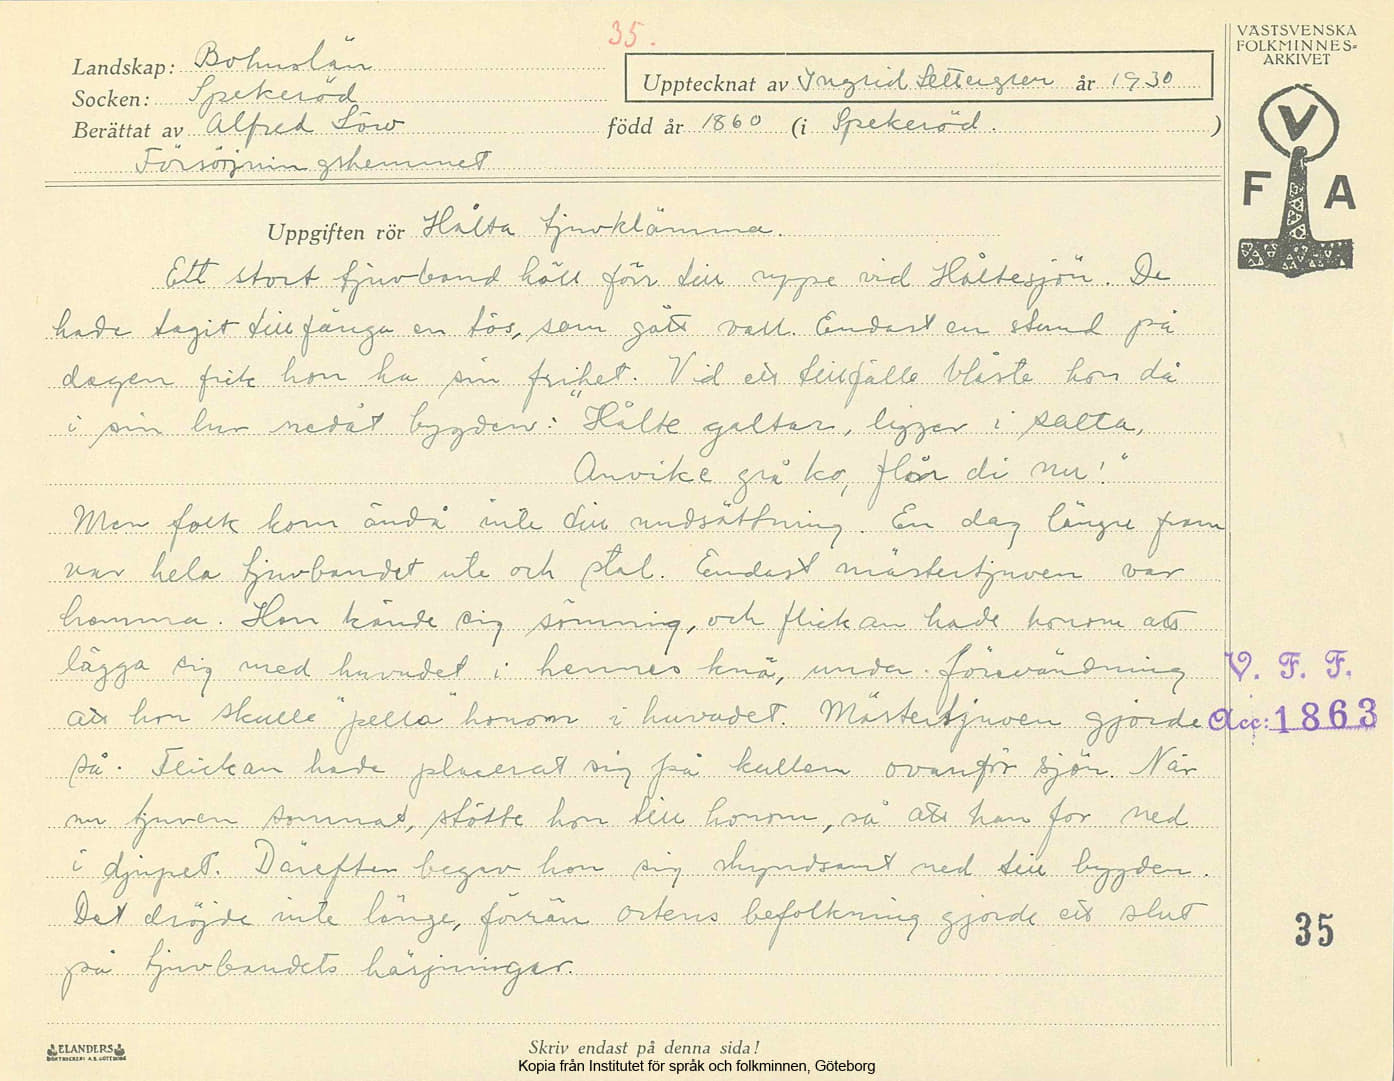 35.
VÄSTSVENSKA
FOLKMINNES-
ARKIVET
Landskap: Bohuslän
Socken: Spekeröd
Upptecknat av Ingrid Settergren år 1930
Berättat av Alfred Löw född år 1860 (i Spekeröd.)
Försörjningshemmet
V
F A
Uppgiften rör Hålta tjuvklämma.
Ett stort tjuvband höll förr till uppe vid Håltesjön. De
hade tagit tillfånga en tös, som gått vall. Endast en stund på
dagen fick hon ha sin frihet. Vid ett tillfälle blåste hon då
i sin lur nedåt bygden: "Hålte galtar, ligger i salta,
Anvike grå ko, flår di nu!"
Men folk kom ändå inte till undsättning. En dag längre fram
var hela tjuvbandet ute och stal. Endast mästertjuven var
hemma. Han kände sig sömnig, och flickan bade honom att
lägga sig med huvudet i hennes knä, under förevändning
att hon skulle "pella" honom i huvudet. Mästertjuven gjorde
så. Flickan hade placerat sig på kullen ovanför sjön. När
nu tjuven somnat, stötte hon till honom, så att han for ned
i djupet. Därefter begav hon sig skyndsamt ned till bygden.
Det dröjde inte länge, förrän ortens befolkning gjorde ett slut
på tjuvbandets härjningar.
V. F. F.
Acc: 1863
35
ELANDERS
BOKTRYCKERI A.B. GÖTEBORG
Skriv endast på denna sida!
Kopia från Institutet för språk och folkminnen, Göteborg